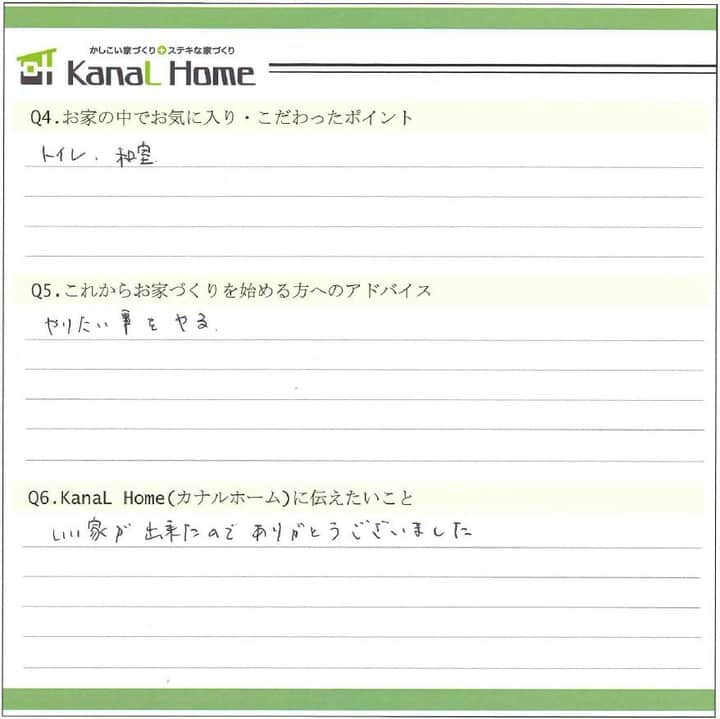 かしこい家づくり+ステキな家づくり
KanaL Home
Q4.お家の中でお気に入り・こだわったポイント
トイレ、和室
Q5.これからお家づくりを始める方へのアドバイス
やりたい事をやる.
Q6.KanaL Home(カナルホーム)に伝えたいこと
いい家が出来たのでありがとうございました